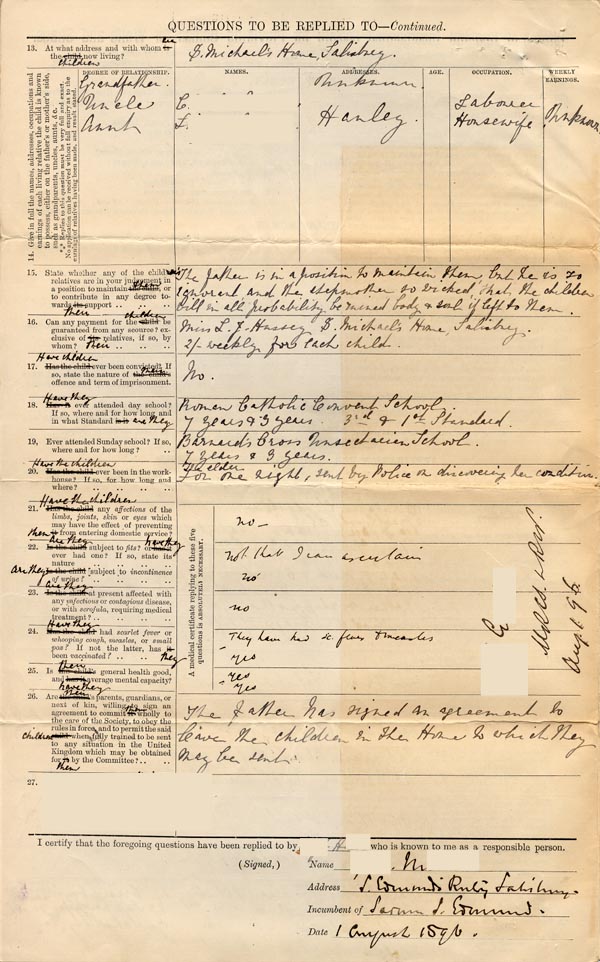 QUESTIONS TO BE REPLIED TO—Continued.
13. At what address and with whom are
the child now living?
children
S. Michael's Home, Salisbury.
14. Give in full the names, addresses, occupations and
earnings of each living relative the child is known
to possess, either on the father's or mother's side,
such as grandparents, uncles, aunts, &c.
*** Replies to this question must be very full and exact.
No application can be received without full enquiry as to the
earnings of relatives having been made, and result stated.
DEGREE OF RELATIONSHIP. NAMES. ADDRESSES. AGE. OCCUPATION. WEEKLY EARNINGS.
Grandfather " " Unknown
Uncle C. " " Labourer
Aunt L. " Hanley Housewife Unknown
15. State whether any of the child
relatives are in your judgement in
a position to maintain them
or to contribute in any degree to-
wards support
The father is in a position to maintain them, but he is so
ignorant and the stepmother so wicked, that the children
will in all probability be ruined body & soul if left to them.
16. Can any payment for the child be
children
guaranteed from any source? ex-
clusive of their relatives, if so, by
whom?
Miss L. J. Hussey S. Michael's Home, Salisbury.
2/- weekly for each child.
Have children
17. Has the child ever been convicted? If
so, state the nature of their
offence and term of imprisonment.
No.
Have they
18. ever attended day school?
If so, where and for how long and
in what Standard is it are they
Roman Catholic Convent School
7 years & 3 years. 3rd & 1st Standard.
19. Ever attended Sunday school? If so,
where and for how long?
Barnard's Cross Unsectarian School.
7 years & 3 years.
Have the children
20. Has the child ever been in the work-
house? If so, for how long and
where?
The elder
For one night, sent by Police on discovering her condition.
A medical certificate replying to these five
questions is ABSOLUTELY NECESSARY.
Have the children
21. Has the child any affections of the
limbs, joints, skin or eyes which
may have the effect of preventing
them from entering domestic service?
no—
Are they
22. Is the child subject to fits? or have they
ever had one? If so, state its
nature
Are they Is the child subject to incontinence
of urine?
not that I can ascertain
no
Are they
23. Is the child at present affected with
any infectious or contagious disease,
or with scrofula, requiring medical
treatment?
no
Have they
24. Has the child had scarlet fever or
whooping cough, measles, or small
pox? If not the latter, has it
been vaccinated? they
They have had sc. fever & measles
yes
25. Is their general health good,
and average mental capacity?
have they
yes
yes
M.R.C.S.
Aug 1. 96.
26. Are their parents, guardians, or
next of kin, willing to sign an
agreement to commit them wholly to
the care of the Society, to obey the
rules in force, and to permit the said
children when fully trained to be sent
to any situation in the United
Kingdom which may be obtained
for them by the Committee?
The father has signed an agreement to
leave the children in the Home to which they
may be sent.
27.
I certify that the foregoing questions have been replied to by H who is known to me as a responsible person.
(Signed,) Name M
Address S. Edmund's Salisbury.
Incumbent of Sarum S. Edmund.
Date 1 August 1896.